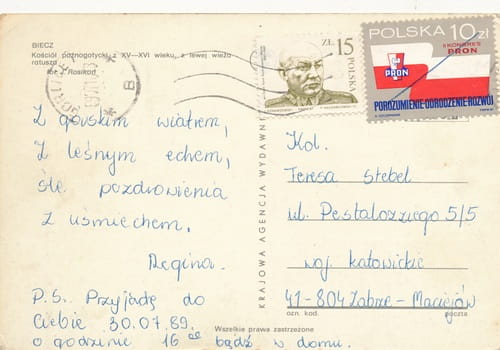 BIECZ
Kościół póznogotycki z XV—XVI wieku, z lewej wieża
ratusza
fot. J. Rosikoń
ZŁ 15
POLSKA
POLSKA 10 zł
II KONGRES
PRON
PRON
POROZUMIENIE·ODRODZENIE·ROZWÓJ
Z górskim wiatrem,
Z leśnym echem,
ślę pozdrowienia
z uśmiechem.
Regina.
P.S. Przyjadę do
Ciebie 30.07.89.
o godzinie 16 00 bądź w domu.
KRAJOWA AGENCJA WYDAWNI
Kol.
Teresa Stebel
ul. Pestalozziego 5/5
woj. katowickie
41-804 Zabrze-Maciejów
ozn. kod. poczta
Wszelkie prawa zastrzeżone